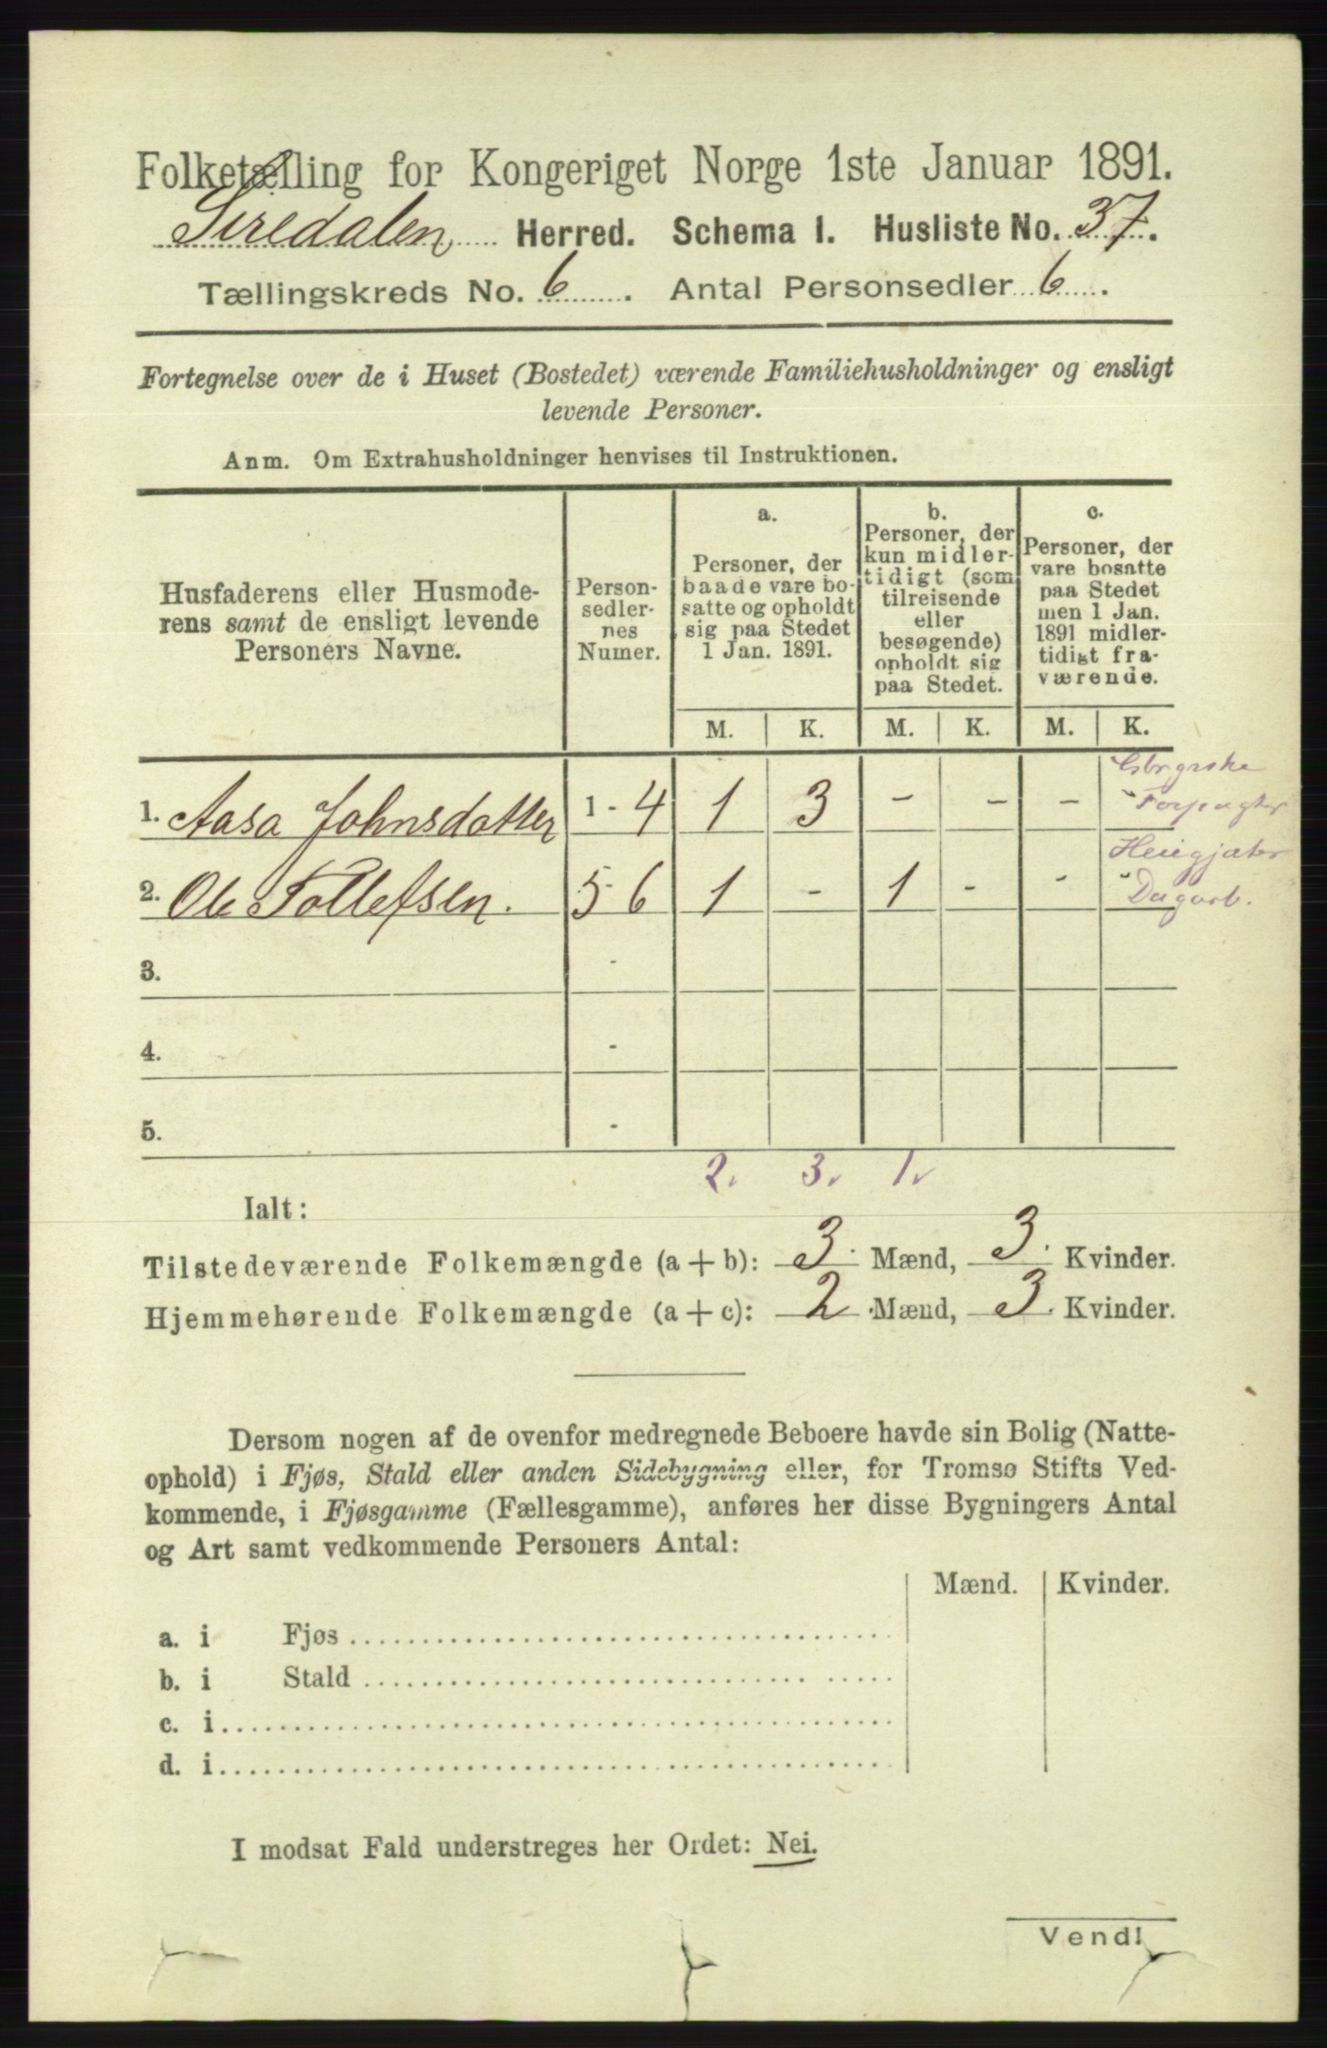 Folketælling for Kongeriget Norge 1ste Januar 1891.
Siredalen Herred. Schema 1. Husliste No. 37.
Tællingskreds No. 6. Antal Personsedler 6.
Fortegnelse over de i Huset (Bostedet) værende Familiehusholdninger og ensligt
levende Personer.
Anm. Om Extrahusholdninger henvises til Instruktionen.
Husfaderens eller Husmode-
rens samt de ensligt levende
Personers Navne.
Person-
sedler-
nes
Numer.
a.
Personer, der
baade vare bo-
satte og opholdt
sig paa Stedet
1 Jan. 1891.
b.
Personer, der
kun midler-
tidigt (som
tilreisende
eller
besøgende)
opholdt sig
paa Stedet.
c.
Personer, der
vare bosatte
paa Stedet
men 1 Jan.
1891 midler-
tidigt fra-
værende.
M. K. M. K. M. K.
1. Aasa Johnsdatter 1 - 4 1 3 - - -
2. Ole Tollefsen. 5 - 6 1 - 1 - -
Dagarb.
3. -
4. -
5. -
2. 3. 1.
Ialt:
Tilstedeværende Folkemængde (a + b): 3. Mænd, 3. Kvinder.
Hjemmehørende Folkemængde (a + c): 2 Mænd, 3. Kvinder.
Dersom nogen af de ovenfor medregnede Beboere havde sin Bolig (Natte-
ophold) i Fjøs, Stald eller anden Sidebygning eller, for Tromsø Stifts Ved-
kommende, i Fjøsgamme (Fællesgamme), anføres her disse Bygningers Antal
og Art samt vedkommende Personers Antal:
Mænd. Kvinder.
a. i Fjøs
b. i Stald
c. i
d. i
I modsat Fald understreges her Ordet: Nei.
Vend!